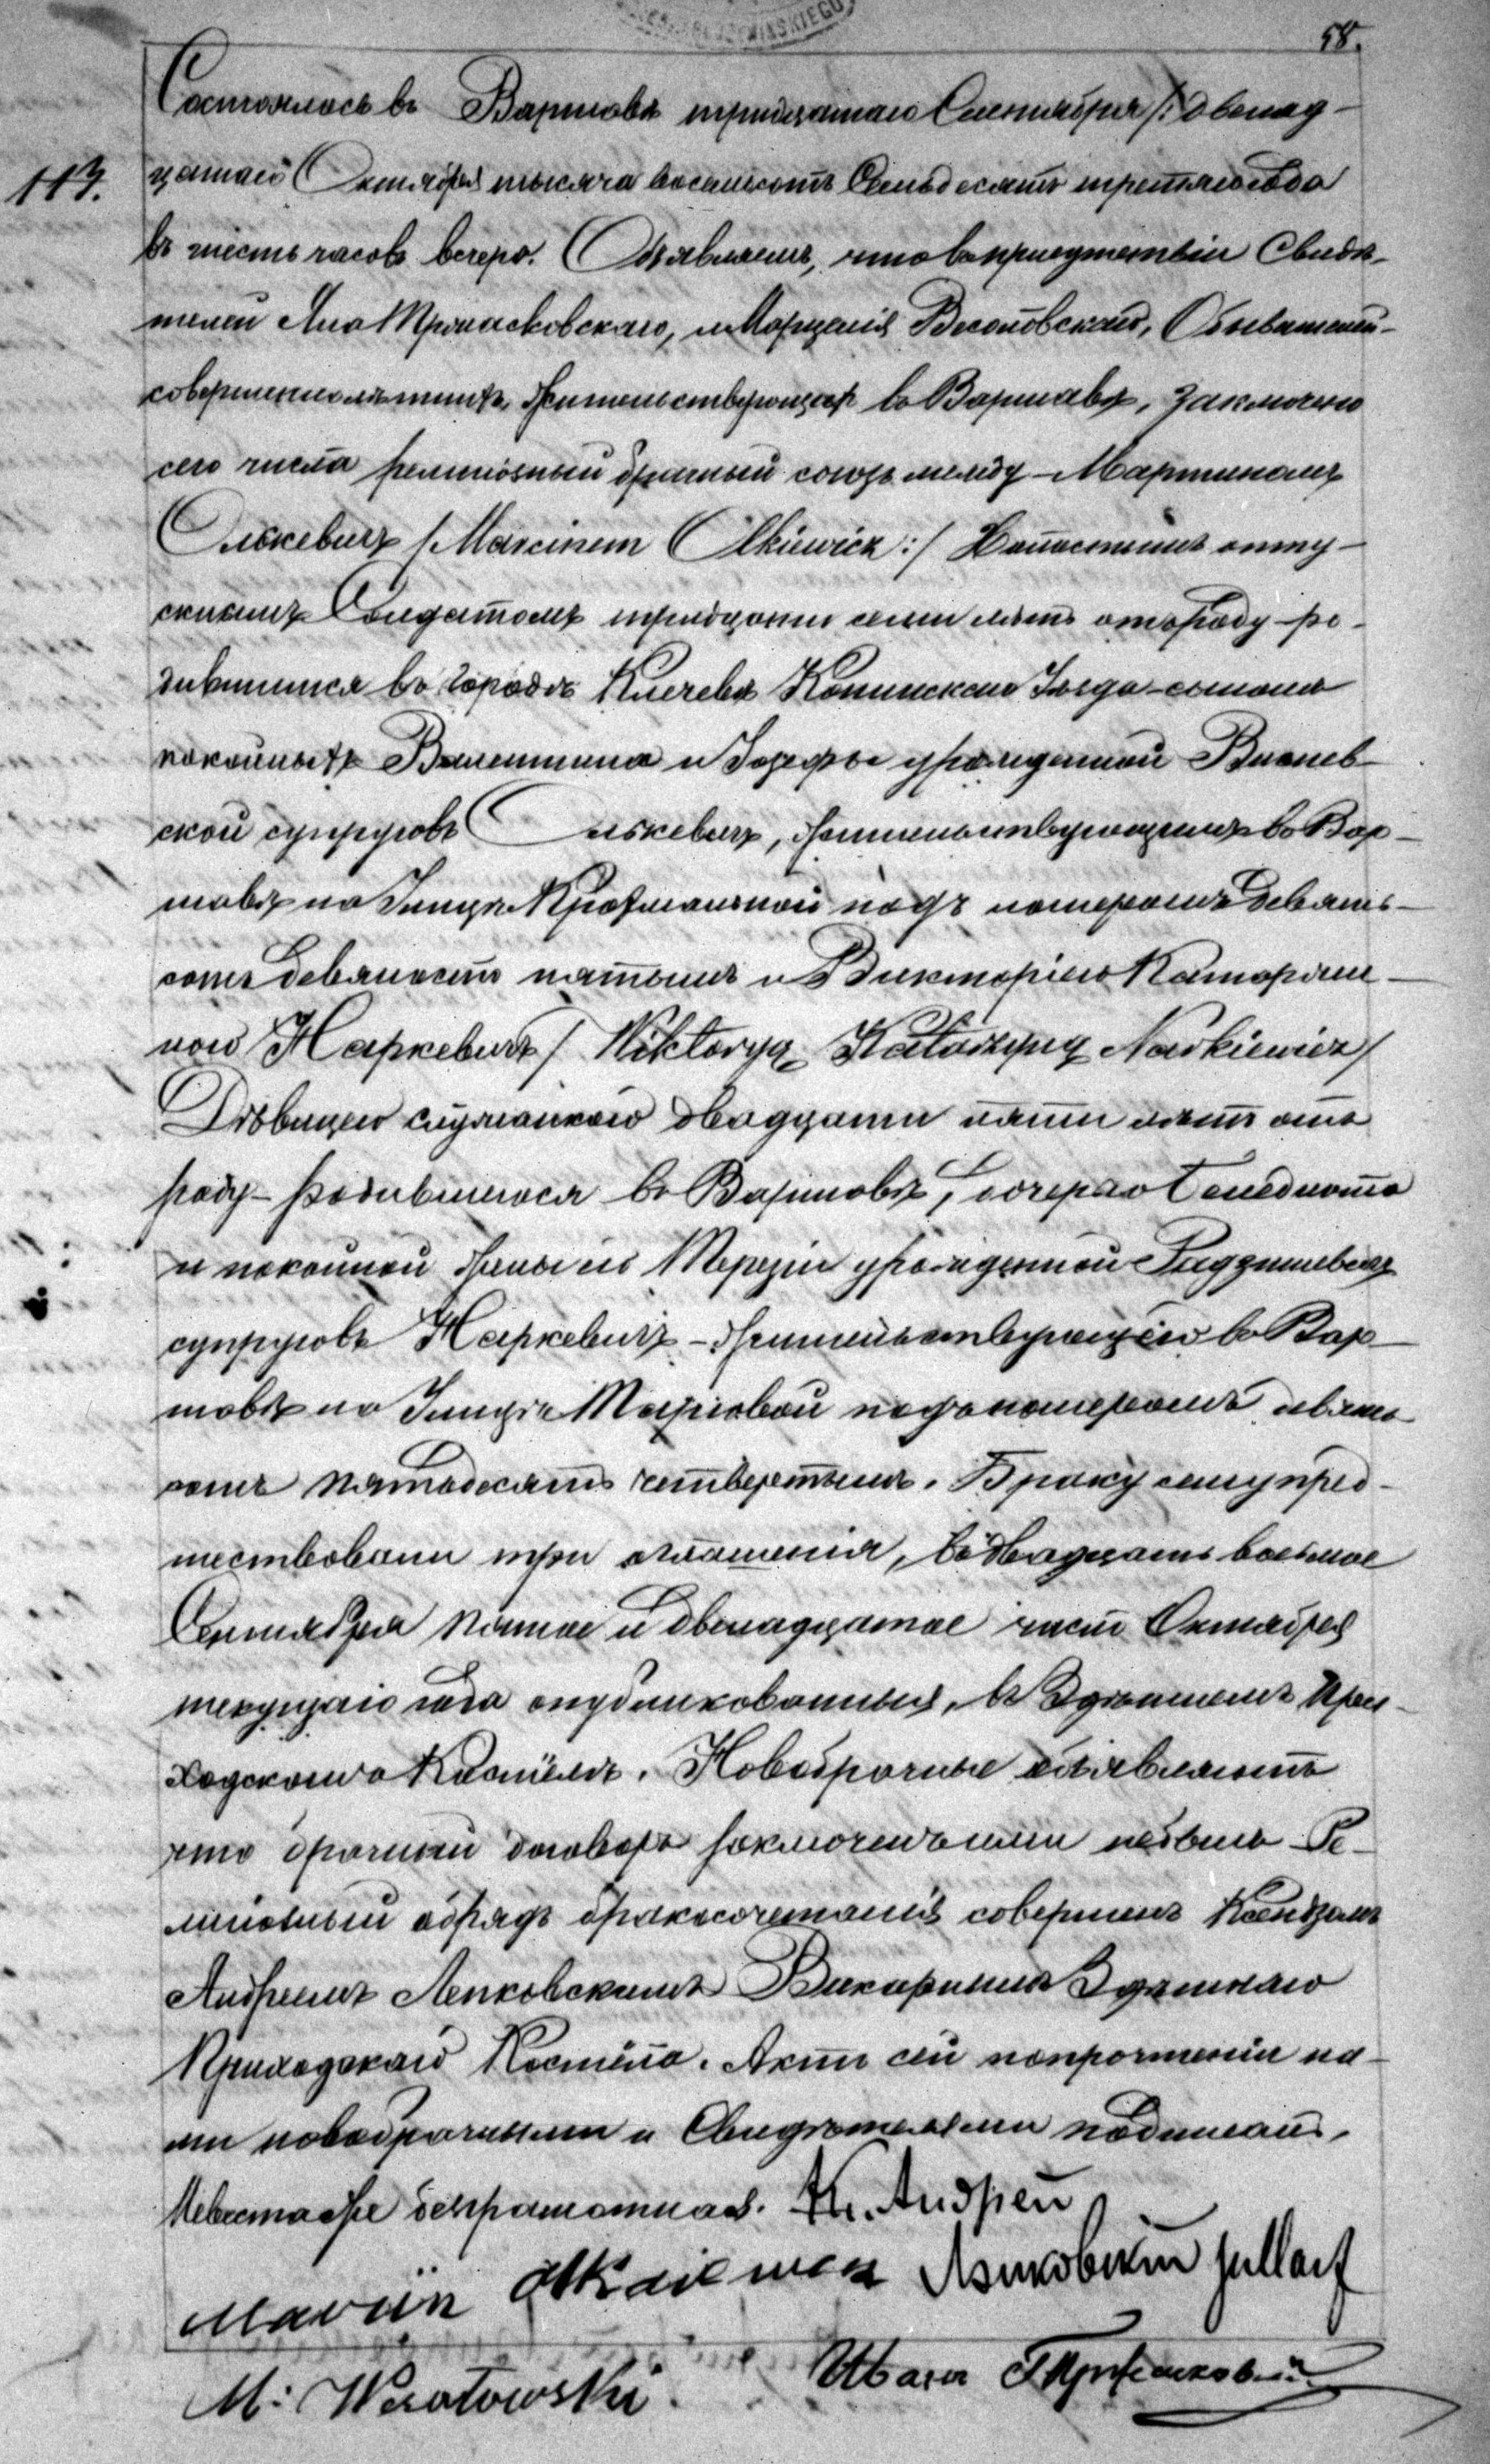 58.
Состоялось въ Варшавѣ тридцатаго Сентября /: двенад-
113. цатаго Октября тысяча восемьсотъ Семьдесятъ третьяго года
въ шесть часовъ вечера. Объявляемъ, что въ присутствіи Свидѣ-
телей Яна и Марцелія Весоловскаго, Обывателей
совершеннолѣтнихъ, жительствующихъ въ Варшавѣ, заключено
сего числа религіозный брачный союзъ между - Мартиномъ
Олькевичъ /Marcinem Olkiewicz:/ отпу-
скнымъ Солдатомъ тридцати семи лѣтъ отъ роду - ро-
дившимся въ городѣ Клечевѣ Конинскаго Уѣзда - сыномъ
покойныхъ Валентина и Іозефы урожденной
ской супруговъ Олькевичъ, жительствующимъ въ Вар-
шавѣ на Улицѣ Крохмальной подъ номеромъ девять-
сотъ девяносто пятымъ и Викторіею Катаржи-
ною Наркевичъ / Wiktoryą Katarzyną Narkiewicz /
Дѣвицею служанкою двадцати пяти лѣтъ отъ
роду - родившеюся въ Варшавѣ, дочерью
и покойной жены его Терезіи урожденной
супруговъ Наркевичъ - жительствующею въ Вар-
шавѣ на Улицѣ Торговой подъ номеромъ девять
сотъ пятьдесятъ четвертымъ. Браку сему пред-
шествовали три оглашенія, въ двадцать восьмое
Сентября пятое и двенадцатое число Октября
текущаго года опубликованныя, въ Здѣшнемъ При-
ходскомъ Костёлѣ. Новобрачные объявляютъ
что брачный договоръ заключенъ ими небылъ - Ре-
лигіозный обрядъ бракосочетанія совершенъ Ксендзомъ
Андреемъ Лепковскимъ Викаріемъ Здѣшняго
Приходскаго Костёла. Актъ сей по прочтеніи на-
ми новобрачными и Свидѣтелями подписанъ,
Невеста же безграмотная. Кс. Андрей
Marcin Olkiewicz
M: Wesołowski. Иванъ